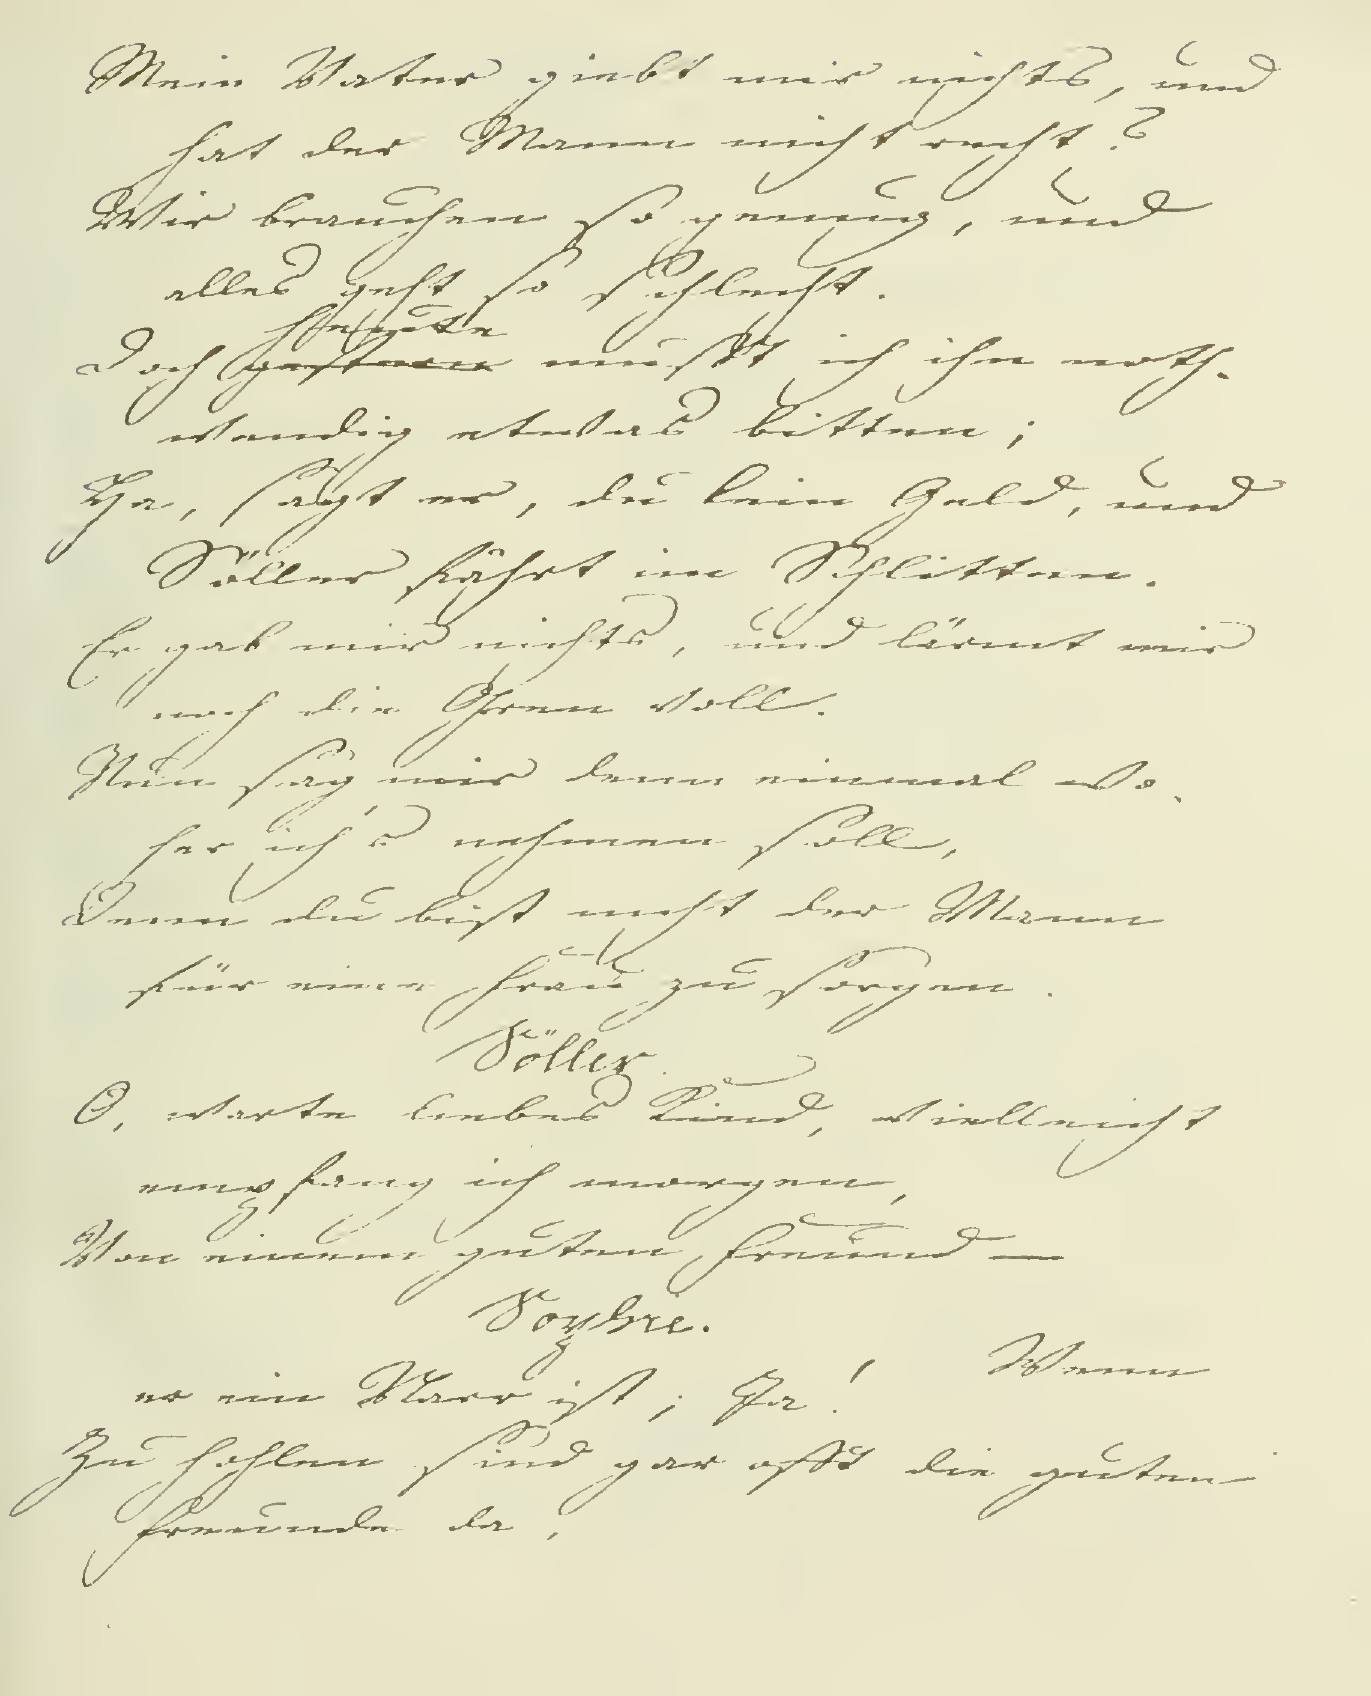 Mein Vater giebt mir nichts, und
hat der Mann nicht recht?
Wir brauchen so genung, und
alles geht so schlecht.
heute
Doch gestern musst ich ihn noth-
wendig etwas bitten;
Ha, sagt er, du kein Geld, und
Söller fährt im Schlitten.
Er gab mir nichts, und lärmt mir
noch die Ohren voll.
Nun sag mir denn einmal wo-
her ich's nehmen soll,
Denn du bist nicht der Mann
für eine Frau zu sorgen.
Söller.
O, warte liebes Kind, vielleicht
empfang ich morgen,
Von einem guten Freund —
Sophie.
Wenn
er ein Narr ist; Ja!
Zu hohlen sind gar offt die guten
Freunde da,